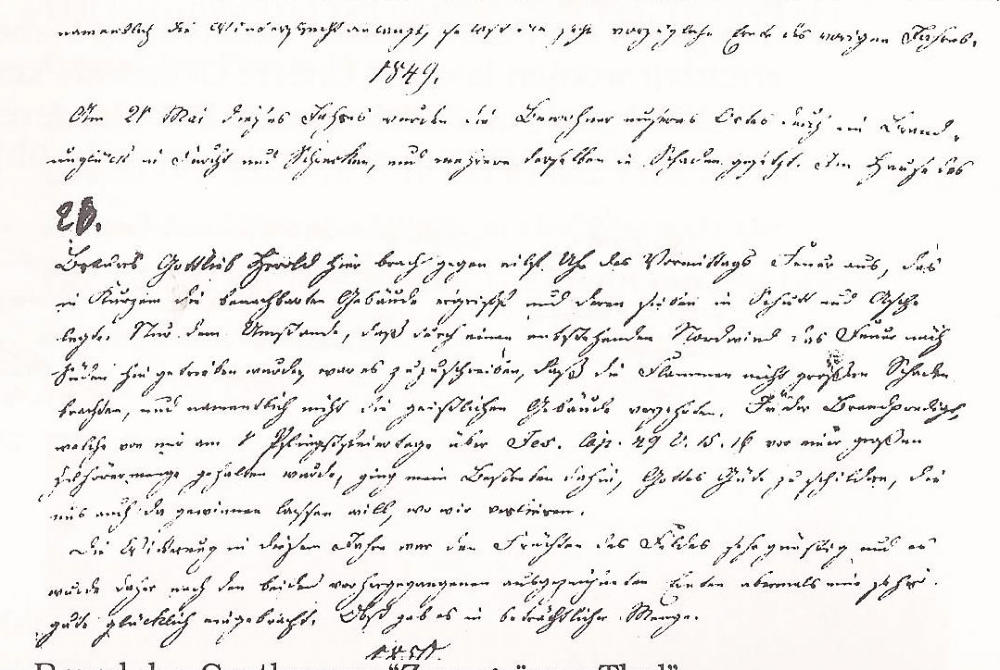 namentlich die Winterfrucht anlangt, sehr vorzügliche Ernte des vorigen Jahres.
1849.
Am 21 Mai dieses Jahres wurden die Bewohner unseres Ortes durch ein Brand-
unglück in Furcht und Schrecken, und mehrere derselben in Schaden gesetzt. Im Hause des
Gottlieb Herold hier brach gegen elf Uhr des Vormittags Feuer aus, das
in Kurzem die benachbarten Gebäude ergriff und deren sieben in Schutt und Asche
legte. Nur dem Umstande, daß durch einen entstehenden Nordwind das Feuer nach
Süden hin getrieben wurde, war es zuzuschreiben, daß die Flammen nicht größeren Schaden
brachten, und namentlich nicht die geistlichen Gebäude verzehrten. In der Brandpredigt,
welche von mir am 1 Pfingstfeiertage über Jes. Cap. 49 V. 15. 16 vor einer großen
Zuhörermenge gehalten wurde, ging mein Bestreben dahin, Gottes Güte zu schildern, die
uns auch da gewinnen lassen will, wo wir verlieren.
Die Witterung in diesem Jahre war den Früchten des Feldes sehr günstig und es
wurde daher nach den beiden vorhergegangenen ausgezeichneten Ernten abermals eine sehr
gute glücklich eingebracht. Obst gab es in beträchtlicher Menge.
1850.